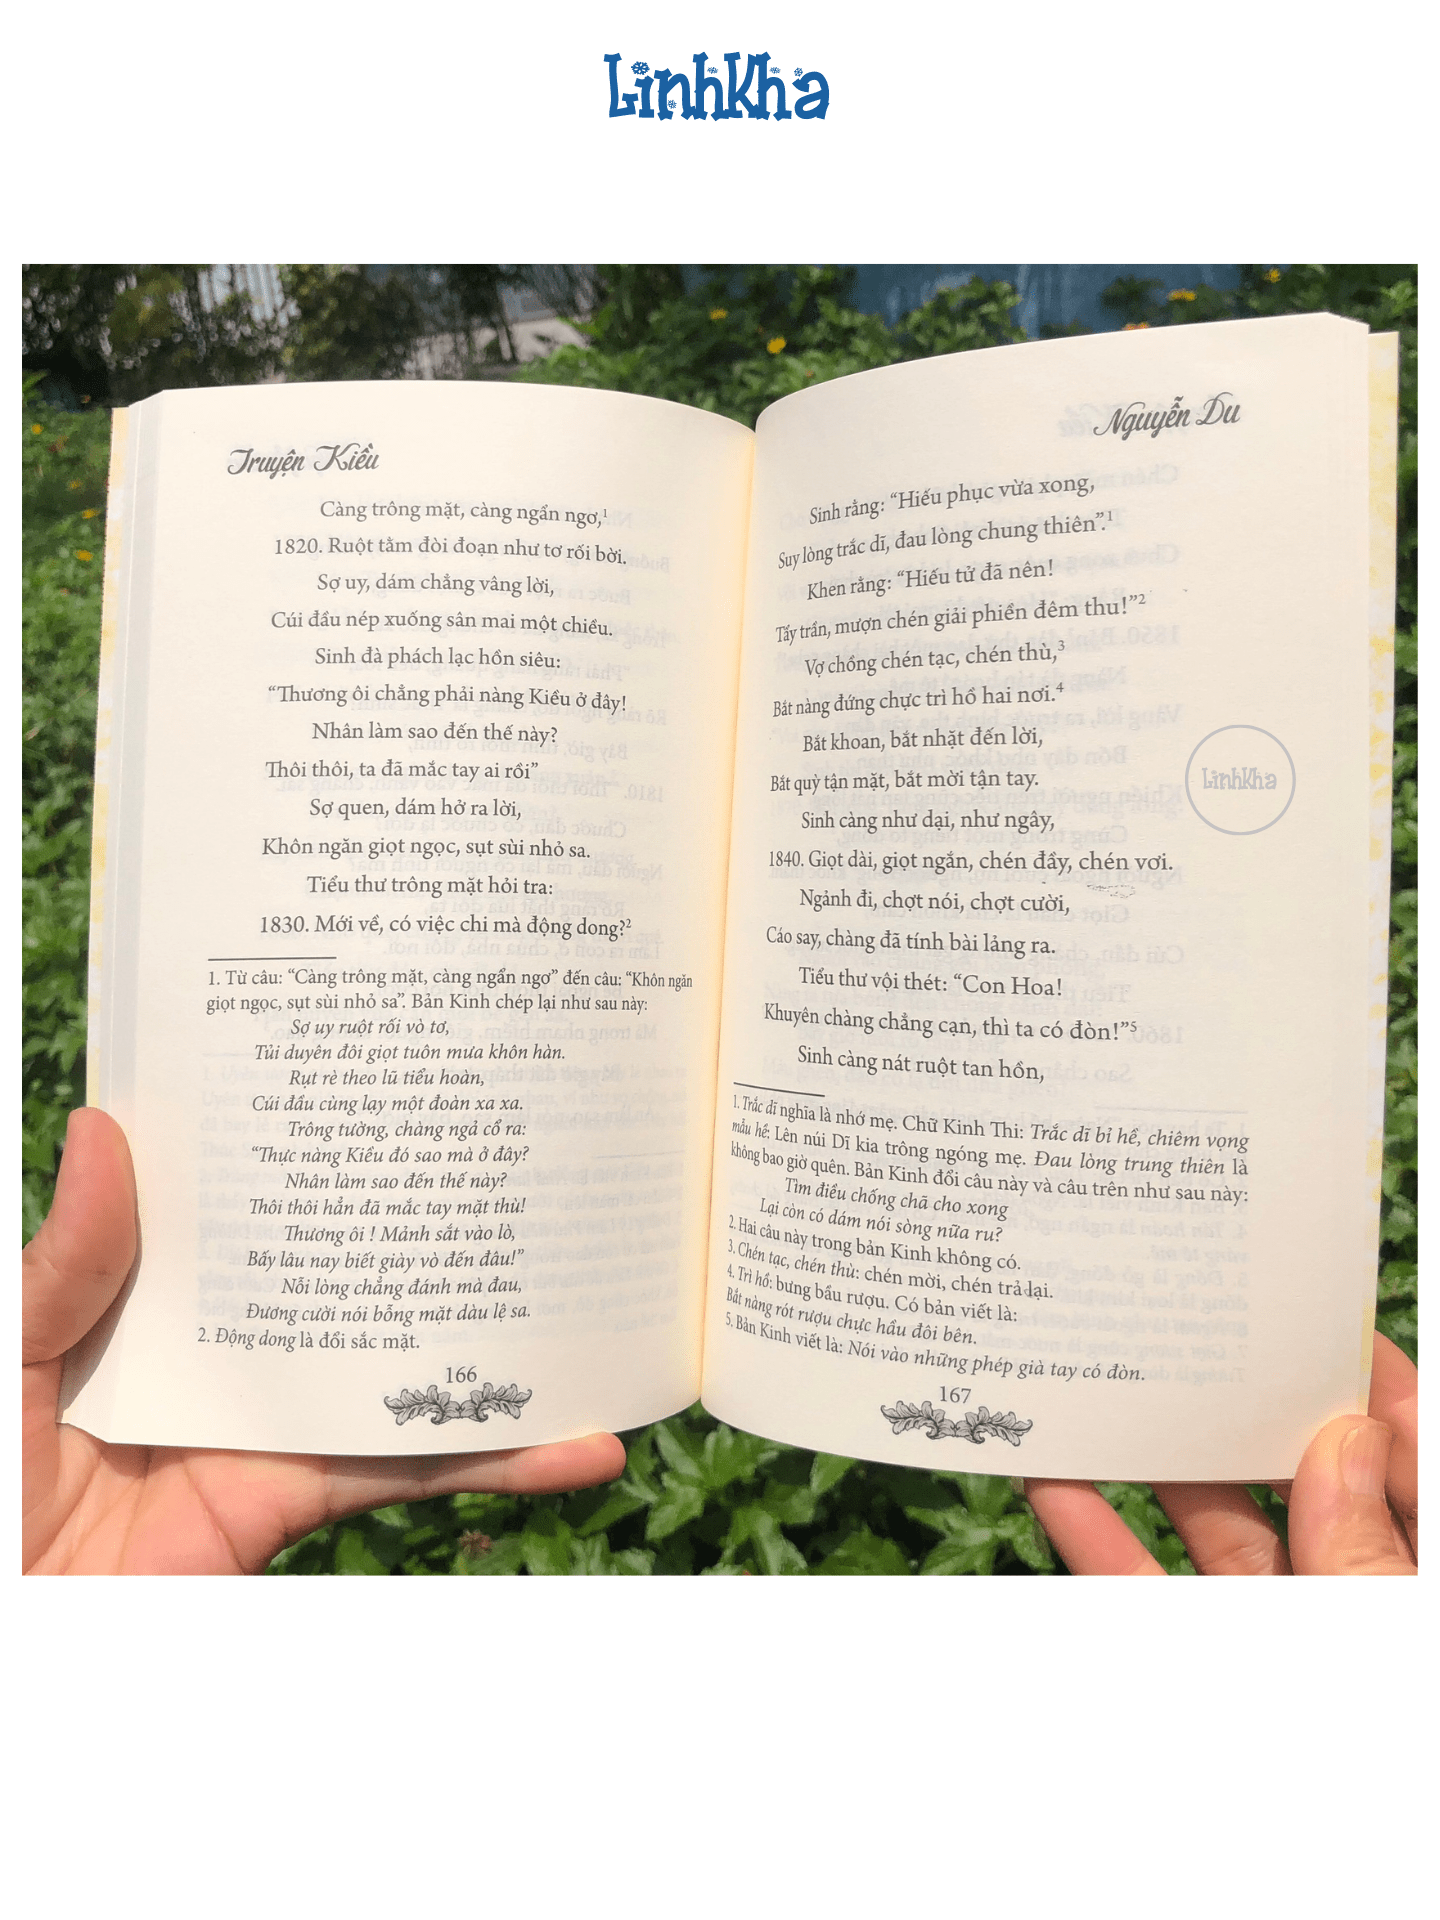 LinhKha
Truyện Kiều
Càng trông mặt, càng ngẩn ngơ,¹
1820. Ruột tằm đòi đoạn như tơ rối bời.
Sợ uy, dám chẳng vâng lời,
Cúi đầu nép xuống sân mai một chiều.
Sinh đà phách lạc hồn siêu:
“Thương ôi chẳng phải nàng Kiều ở đây!
Nhân làm sao đến thế này?
Thôi thôi, ta đã mắc tay ai rồi”
Sợ quen, dám hở ra lời,
Khôn ngăn giọt ngọc, sụt sùi nhỏ sa.
Tiểu thư trông mặt hỏi tra:
1830. Mới về, có việc chi mà động dong?²
1. Từ câu: “Càng trông mặt, càng ngẩn ngơ” đến câu: “Khôn ngăn
giọt ngọc, sụt sùi nhỏ sa”. Bản Kinh chép lại như sau này:
Sợ uy ruột rối vò tơ,
Tủi duyên đôi giọt tuôn mưa khôn hàn.
Rụt rè theo lũ tiểu hoàn,
Cúi đầu cùng lạy một đoàn xa xa.
Trông tường, chàng ngả cổ ra:
“Thực nàng Kiều đó sao mà ở đây?
Nhân làm sao đến thế này?
Thôi thôi hẳn đã mắc tay mặt thù!
Thương ôi ! Mảnh sắt vào lò,
Bấy lâu nay biết giày vò đến đâu!”
Nỗi lòng chẳng đánh mà đau,
Đương cười nói bỗng mặt dàu lệ sa.
2. Động dong là đổi sắc mặt.
166
Nguyễn Du
Sinh rằng: “Hiếu phục vừa xong,
Suy lòng trắc dĩ, đau lòng chung thiên”.¹
Khen rằng: “Hiếu tử đã nên!
Tẩy trần, mượn chén giải phiền đêm thu!”²
Vợ chồng chén tạc, chén thù,³
Bắt nàng đứng chực trì hồ hai nơi.⁴
Bắt khoan, bắt nhặt đến lời,
Bắt quỳ tận mặt, bắt mời tận tay.
Sinh càng như dại, như ngây,
1840. Giọt dài, giọt ngắn, chén đầy, chén vơi.
Ngảnh đi, chợt nói, chợt cười,
Cáo say, chàng đã tính bài lảng ra.
Tiểu thư vội thét: “Con Hoa!
Khuyên chàng chẳng cạn, thì ta có đòn!”⁵
Sinh càng nát ruột tan hồn,
1. Trắc dĩ nghĩa là nhớ mẹ. Chữ Kinh Thi: Trắc dĩ bỉ hề, chiêm vọng
mẫu hề: Lên núi Dĩ kia trông ngóng mẹ. Đau lòng trung thiên là
không bao giờ quên. Bản Kinh đổi câu này và câu trên như sau này:
Tìm điều chống chã cho xong
Lại còn có dám nói sòng nữa ru?
2. Hai câu này trong bản Kinh không có.
3. Chén tạc, chén thù: chén mời, chén trả lại.
4. Trì hồ: bưng bầu rượu. Có bản viết là:
Bắt nàng rót rượu chực hầu đôi bên.
5. Bản Kinh viết là: Nói vào những phép già tay có đòn.
167
LinhKha